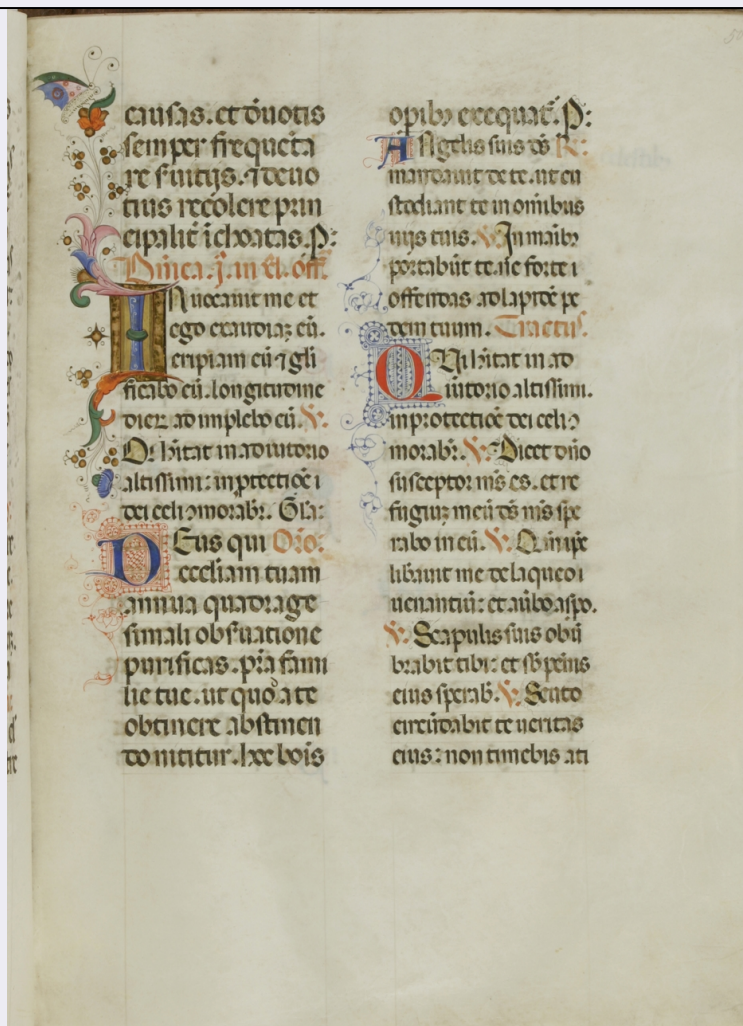 causas. et dev̄otis
semper freq̄uēta
re ẜuitijs. ⁊ devo
tius recolere prin
cipalit̄ īchoatas. P:
Dn̄ica. j. in xl. off̄.
INuocauit me et
ego exaudiaꝫ eū.
eripiam eū ⁊ gl̄i
ficabo eū. longitudine
dieꝝ adimplebo eū. V.
Q̄i h̄itat in adiutorio
altissimi: in ꝓtectiōe
dei celi ↄ̄morabr̄. Gl̄a:
DEus qui Or̄o:
eccl̄iam tuam
annua quadrage
simali obẜuatione
purificas. pr̄a fami
lie tue. ut quod a te
obtinere abstinen
do nititur. hoc bo̅is
opibꝰ exequat̄. P:
ANgelis suis d̄s R:
mandauit de te. ut cu
stodiant te in om̄ibus
uijs tuis. V. In manibꝰ
portabūt te. ne forte
offendas ad lapidē pe
dem tuum. Tractus.
QUi h̄itat in ad
iutorio altissimi.
in protectiōe dei celi
morabr̄. V. Dicet dn̄o
susceptor m̄s es. et re
fugiuꝫ meū d̄s m̄s spe
rabo in eū. V. Qm̄ ip̄e
liberauit me de laqueo
uenantiū: et a ūbo aspo.
V. Scapulis suis obū
brabit tibi: et sb̄ pēnis
eius sperab̄. V. Scuto
circūdabit te ueritas
eius: non timebis a ti